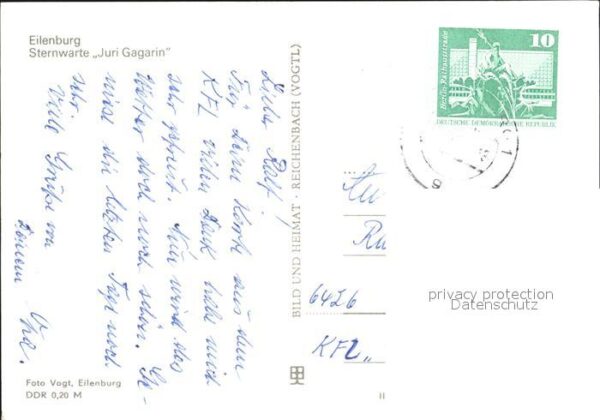 Eilenburg
Sternwarte „Juri Gagarin"
Lieber Ralf!
Für Deine Karte aus dem
KFL vielen Dank habe mich
sehr gefreut. Nun wird das
Wetter doch noch schön. Ge-
nieß die letzten Tage noch
sehr.
Viele Grüße von
Deinem
Foto Vogt, Eilenburg
DDR 0,20 M
BILD UND HEIMAT · REICHENBACH (VOGTL)
10
Berlin-Rathausstraße
DEUTSCHE DEMOKRATISCHE REPUBLIK
6426
KFL „
privacy protection
Datenschutz